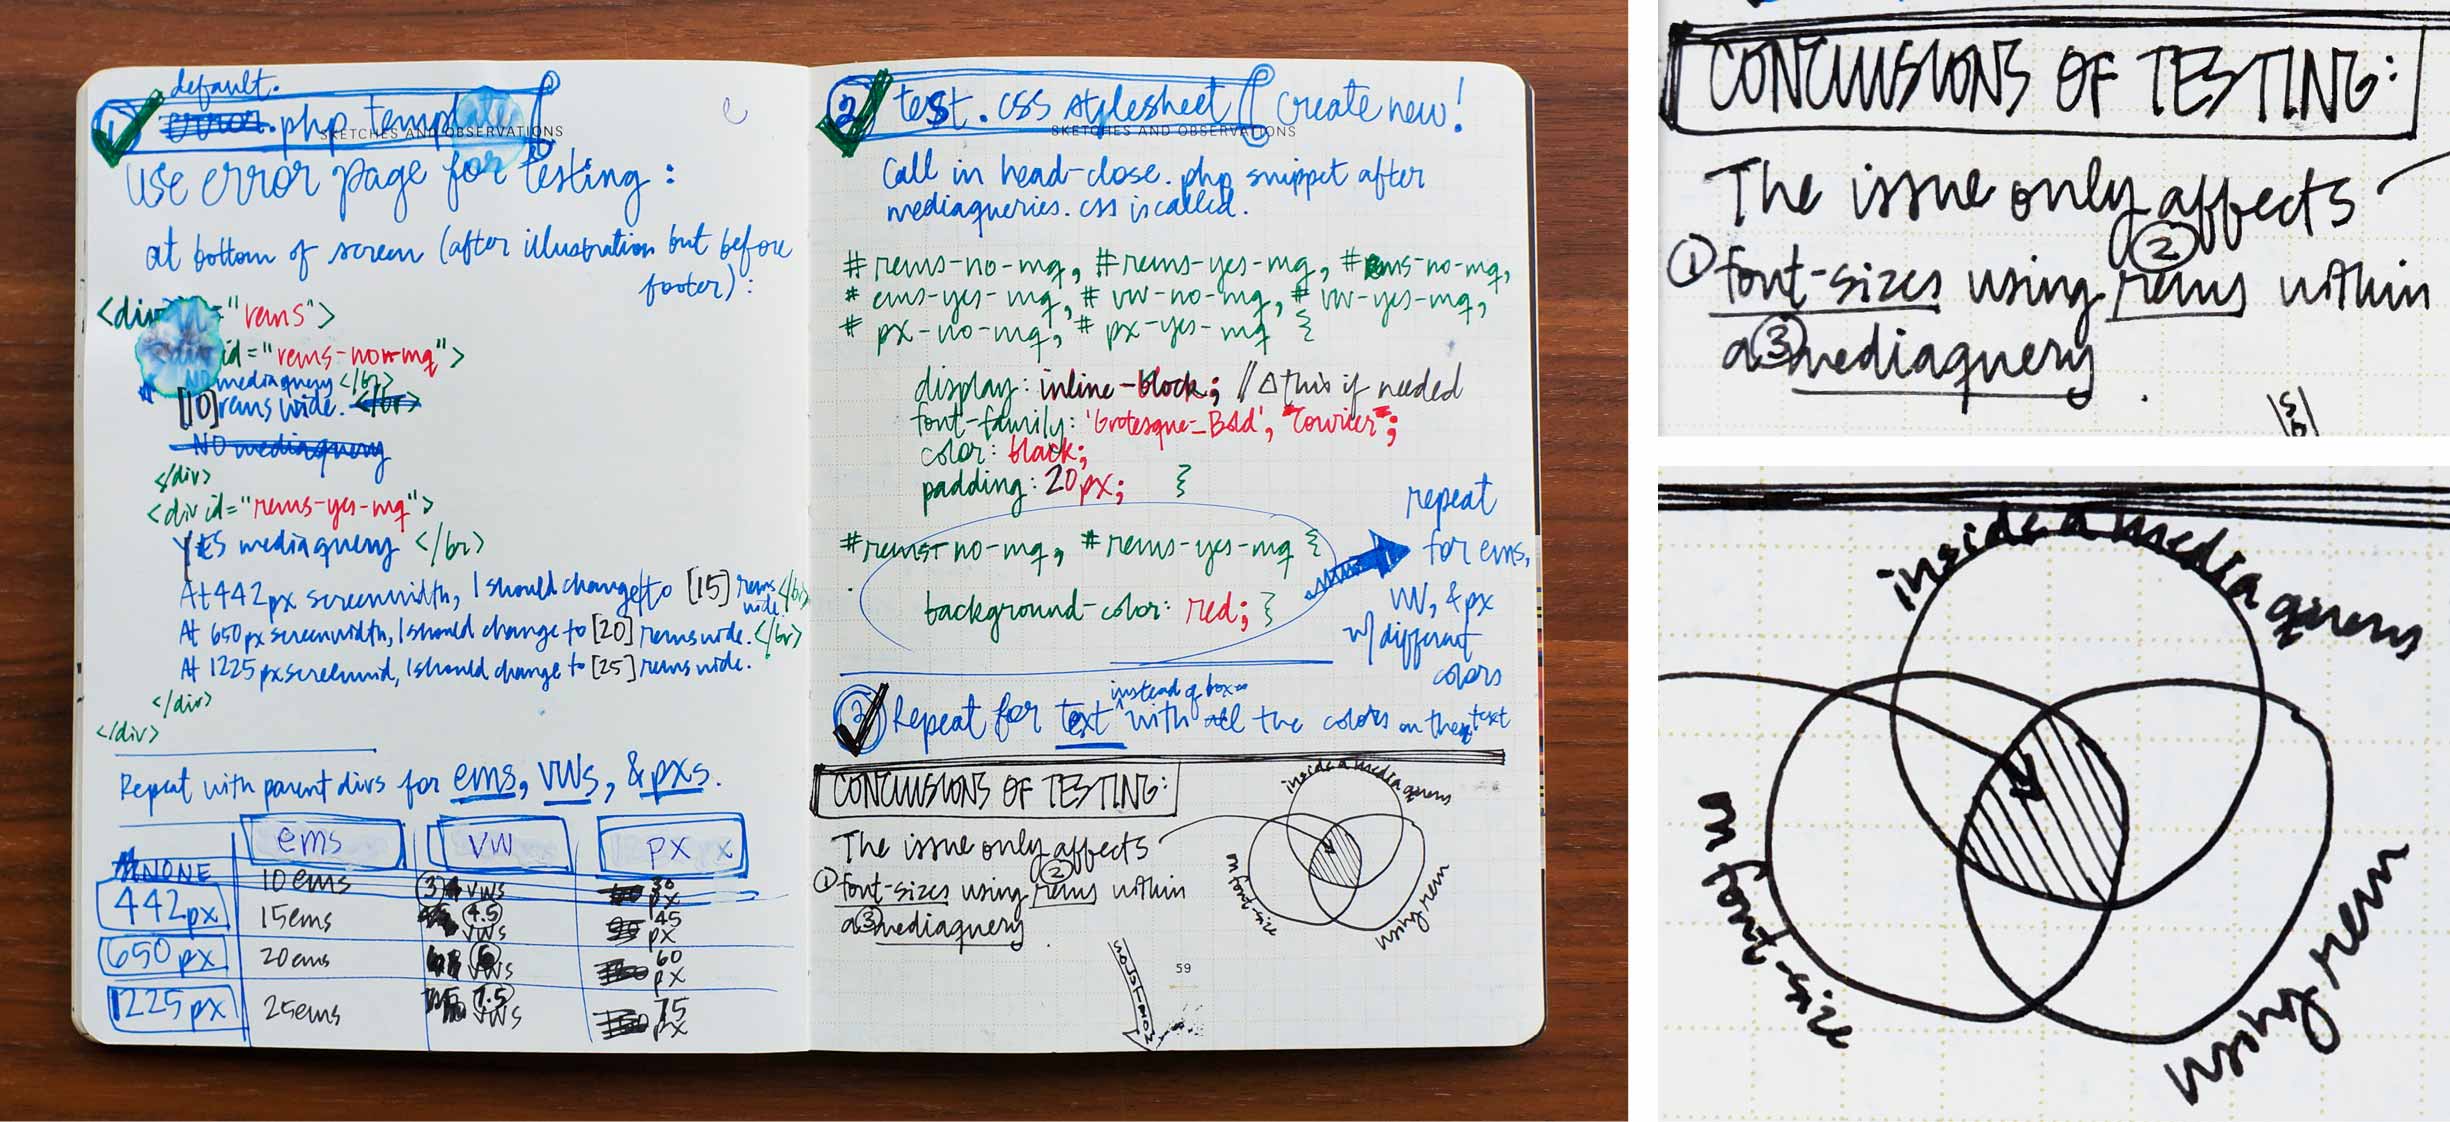 default.
① error.php template
SKETCHES AND OBSERVATIONS
use error page for testing:
at bottom of screen (after illustration but before
footer):
<div ="rems">
id="rems-no-mq">
NO mediaquery </br>
[10] rems wide. </br>
NO mediaquery
</div>
<div id="rems-yes-mq">
YES mediaquery </br>
At 442px screenwidth, I should change to [15] rems wide. </br>
At 650px screenwidth, I should change to [20] rems wide. </br>
At 1225px screenwid, I should change to [25] rems wide.
</div>
</div>
Repeat with parent divs for ems, vws, & pxs.
ems vw px x
NONE 10ems 3 vws 30 px
442px 15ems 4.5 vws 45 px
650px 20ems 6 vws 60 px
1225px 25ems 7.5 vws 75 px
② test.css stylesheet create new!
SKETCHES AND OBSERVATIONS
Call in head-close.php snippet after
mediaqueries.css is called.
#rems-no-mq, #rems-yes-mq, #ems-no-mq,
#ems-yes-mq, #vw-no-mq, #vw-yes-mq,
#px-no-mq, #px-yes-mq {
display: inline-block; //∆ this if needed
font-family: 'Grotesque-Bold', "Courier";
color: black;
padding: 20px; }
#rems-no-mq, #rems-yes-mq {
background-color: red; }
repeat
for ems,
vw, & px
w/ different
colors
③ Repeat for text instead of boxes with all the colors on the text
CONCLUSIONS OF TESTING:
The issue only affects
① font-sizes using ② rems within
a ③ mediaquery
inside a mediaquery
in font-size
using rem
59
CONCLUSIONS OF TESTING:
The issue only affects
① font-sizes using ② rems within
a ③ mediaquery
inside a mediaquery
in font-size
using rem